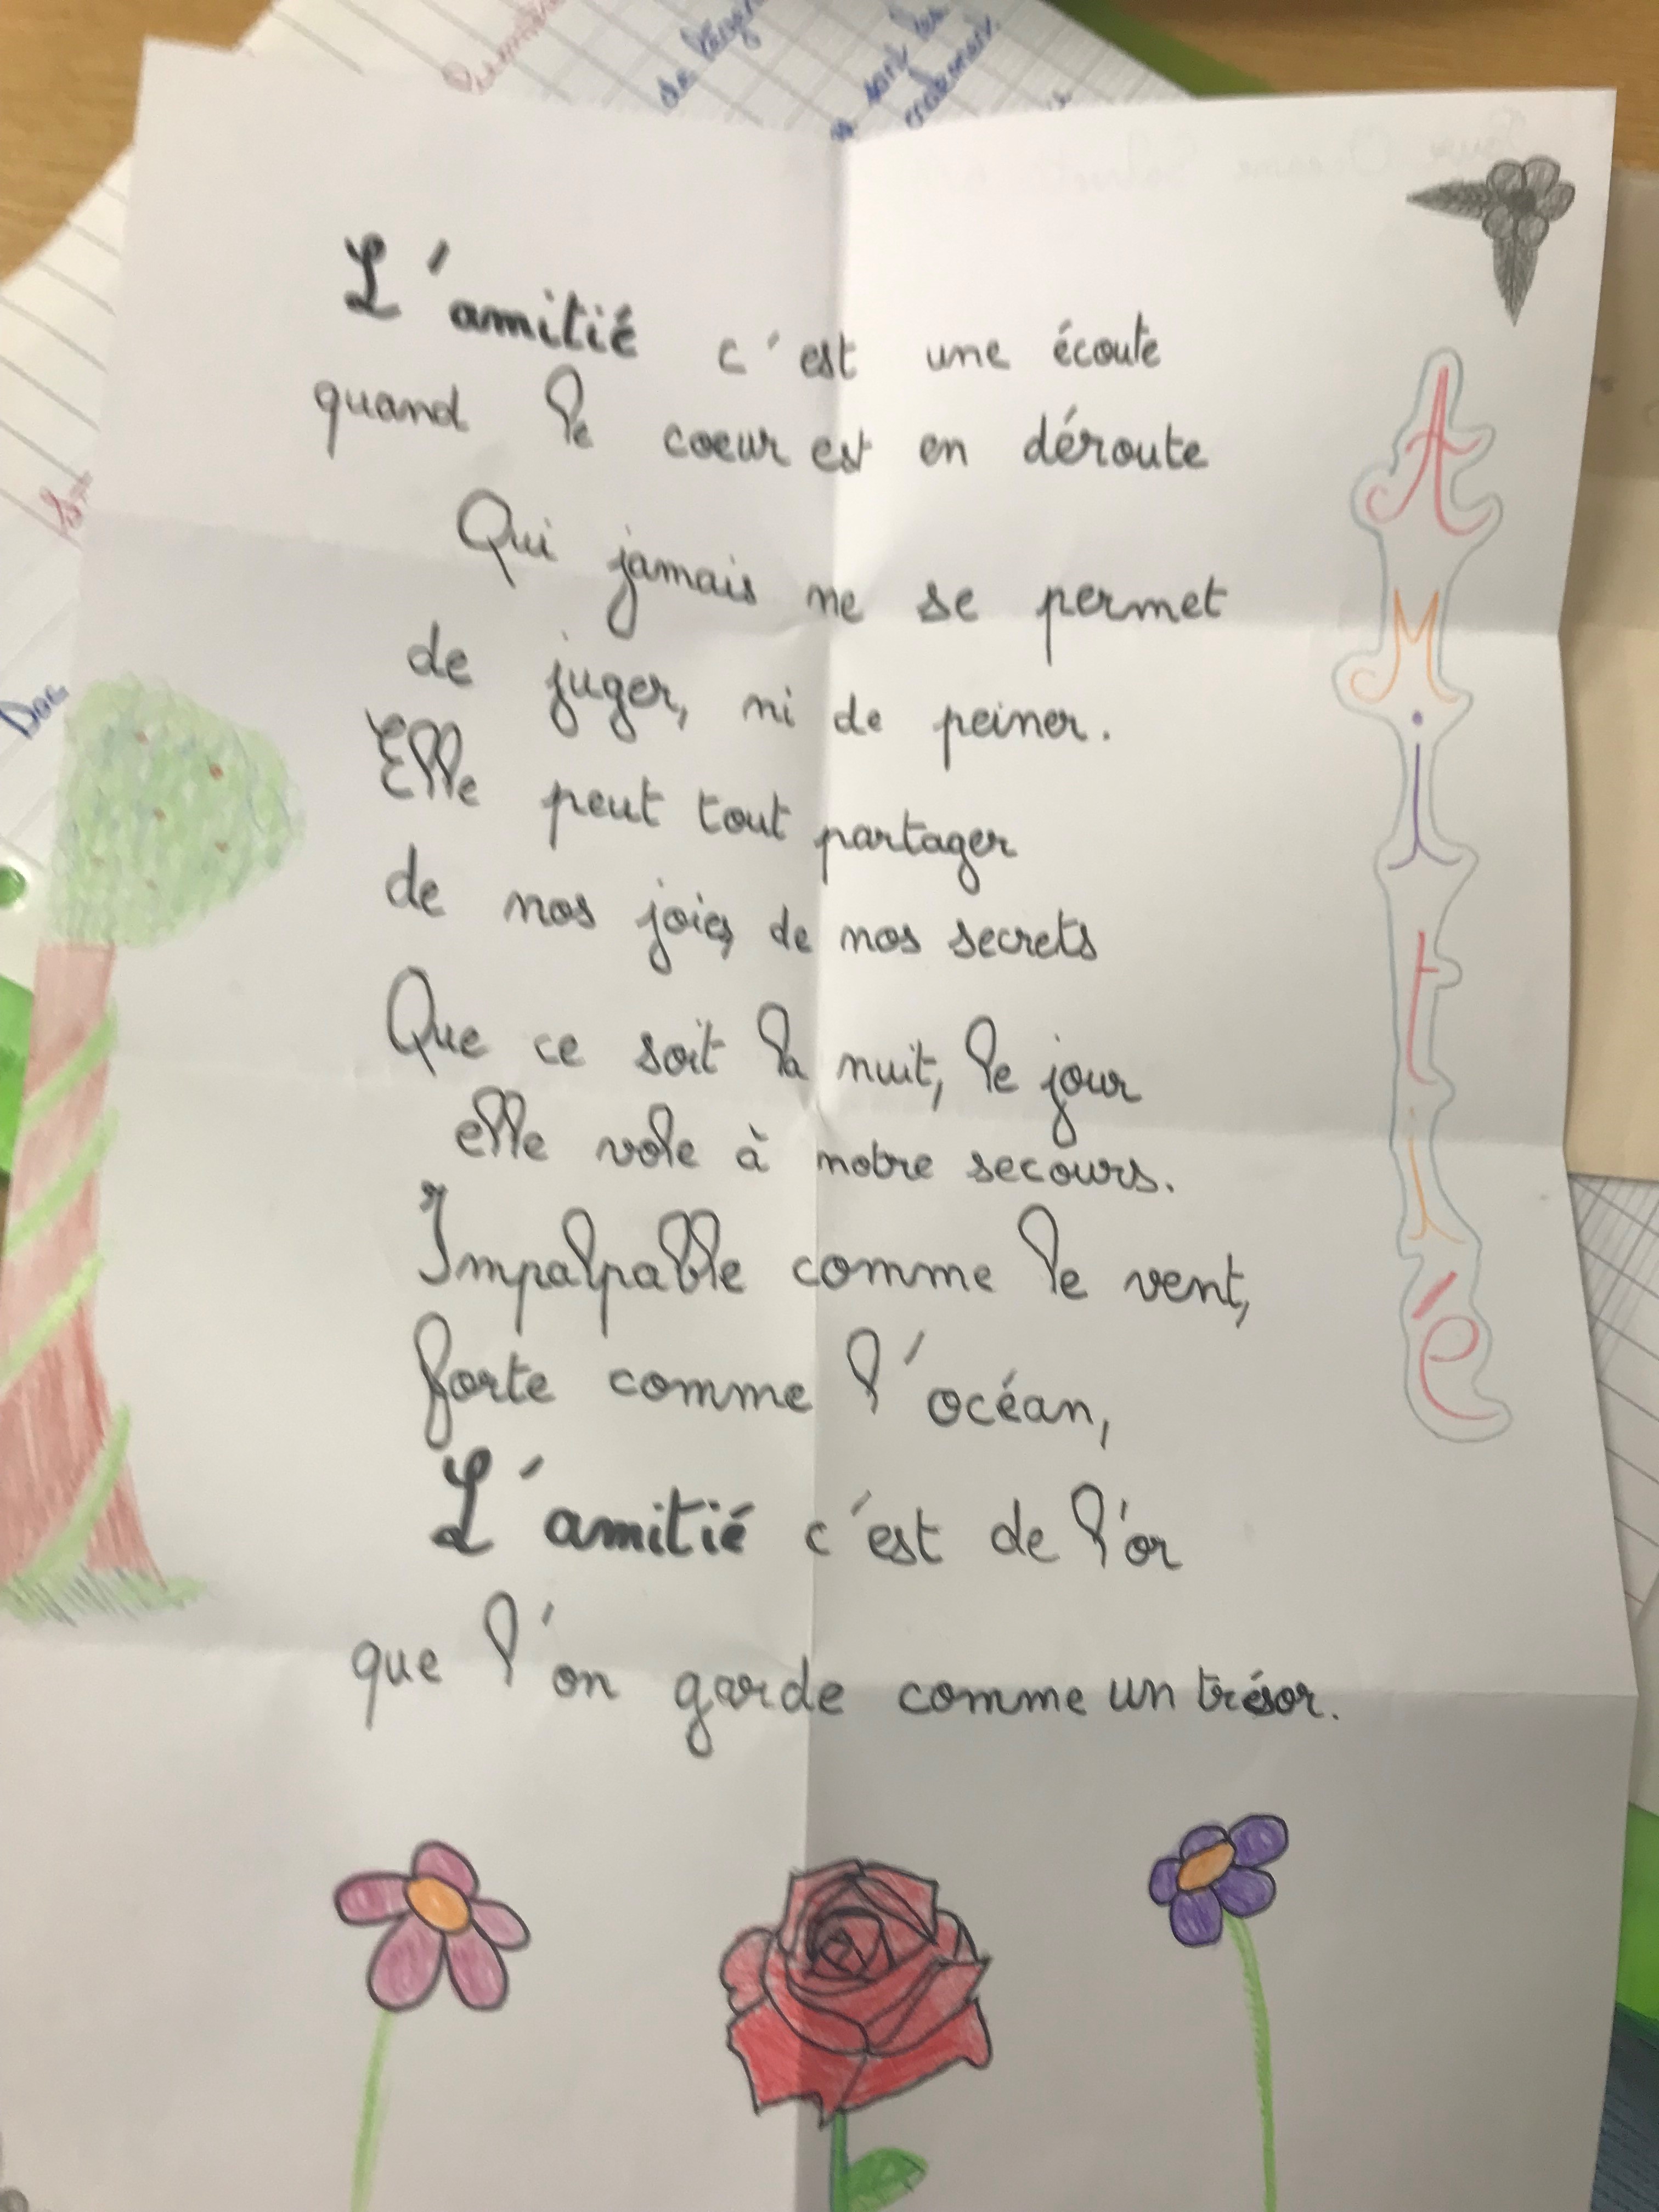 L'amitié c'est une écoute
quand le coeur est en déroute
Qui jamais ne se permet
de juger, ni de peiner.
Elle peut tout partager
de nos joies, de nos secrets
Que ce soit la nuit, le jour
elle vole à notre secours.
Impalpable comme le vent,
forte comme l'océan,
L'amitié c'est de l'or
que l'on garde comme un trésor.
AMitié
Doc